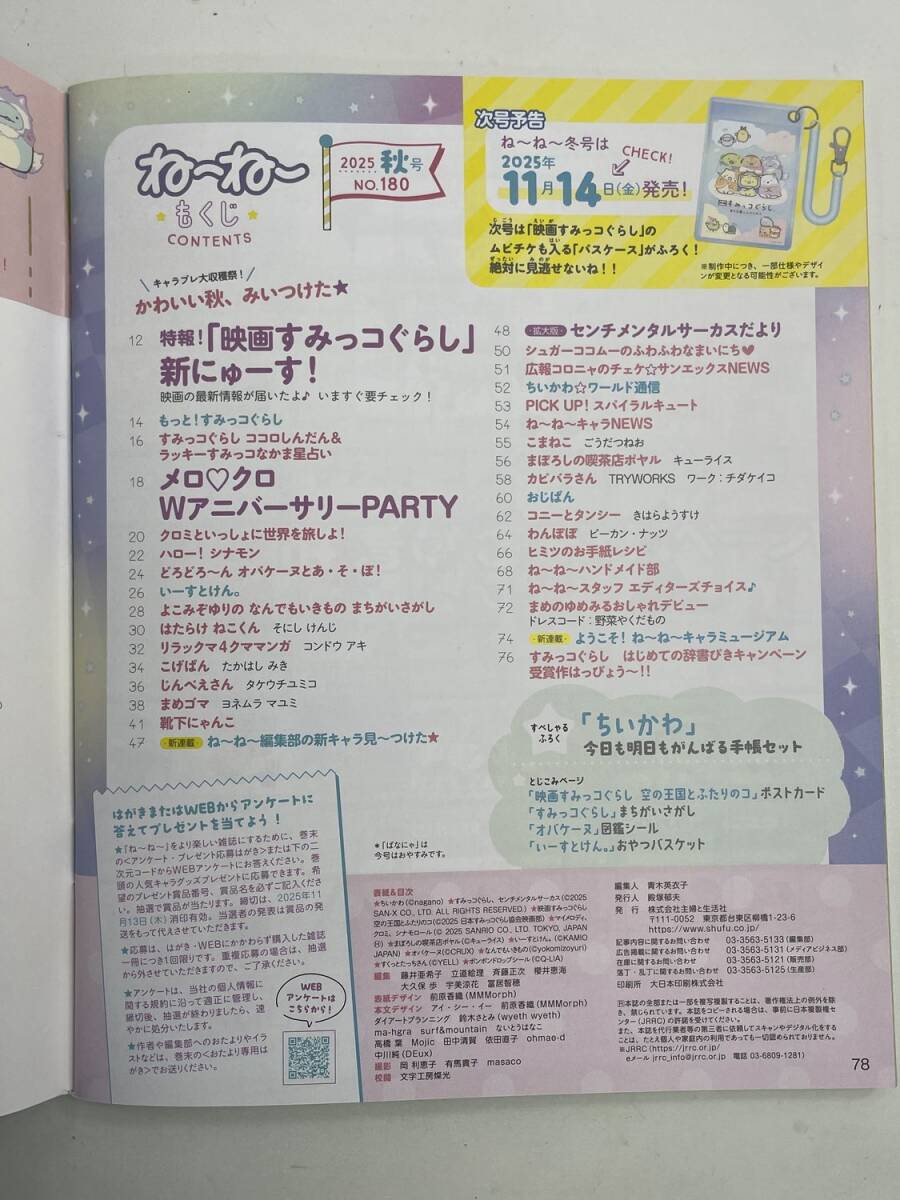 ね〜ね〜
もくじ
CONTENTS
2025 秋号
NO.180
次号予告
ね〜ね〜冬号は
2025年
11月14日(金)発売!
CHECK!
次号は「映画すみっコぐらし」の
ムビチケも入る「パスケース」がふろく!
絶対に見逃せないね!!
※制作中につき、一部仕様やデザイ
ンが変更となる可能性がございます。
キャラプレ大収穫祭!
かわいい秋、みいつけた★
12 特報!「映画すみっコぐらし」
新にゅーす!
映画の最新情報が届いたよ♪ いますぐ要チェック!
14 もっと!すみっコぐらし
16 すみっコぐらし ココロしんだん&
ラッキーすみっコなかま星占い
18 メロ♡クロ
WアニバーサリーPARTY
20 クロミといっしょに世界を旅しよ!
22 ハロー! シナモン
24 どろどろ〜ん オバケーヌとあ・そ・ぼ!
26 いーすとけん。
28 よこみぞゆりの なんでもいきもの まちがいさがし
30 はたらけ ねこくん そにし けんじ
32 リラックマ4クママンガ コンドウ アキ
34 こげぱん たかはし みき
36 じんべえさん タケウチユミコ
38 まめゴマ ヨネムラ マユミ
41 靴下にゃんこ
47 新連載 ね〜ね〜編集部の新キャラ見〜つけた★
48 拡大版 センチメンタルサーカスだより
50 シュガーココムーのふわふわなまいにち♥
51 広報コロニャのチェケ☆サンエックスNEWS
52 ちいかわ☆ワールド通信
53 PICK UP! スパイラルキュート
54 ね〜ね〜キャラNEWS
55 こまねこ ごうだつねお
56 まぼろしの喫茶店ポヤル キューライス
58 カピバラさん TRYWORKS ワーク:チダケイコ
60 おじぱん
62 コニーとタンシー きはらようすけ
64 わんぽぽ ビーカン・ナッツ
66 ヒミツのお手紙レシピ
68 ね〜ね〜ハンドメイド部
71 ね〜ね〜スタッフ エディターズチョイス♪
72 まめのゆめみるおしゃれデビュー
ドレスコード:野菜やくだもの
74 新連載 ようこそ! ね〜ね〜キャラミュージアム
76 すみっコぐらし はじめての辞書びきキャンペーン
受賞作はっぴょう〜!!
すぺしゃる
ふろく
「ちいかわ」
今日も明日もがんばる手帳セット
とじこみページ
「映画すみっコぐらし 空の王国とふたりのコ」ポストカード
「すみっコぐらし」まちがいさがし
「オバケーヌ」図鑑シール
「いーすとけん。」おやつバスケット
*「ばなにゃ」は
今号はおやすみです。
はがきまたはWEBからアンケートに
答えてプレゼントを当てよう!
★「ね〜ね〜」をより楽しい雑誌にするために、巻末
の<アンケート・プレゼント応募はがき>または下の二
次元コードからWEBアンケートにお答えください。巻
頭の人気キャラグッズプレゼントに応募できます。希
望のプレゼント賞品番号、賞品名を必ずご記入くださ
い。抽選で賞品が当たります。締切は、2025年11
月13日(木)消印有効。当選者の発表は賞品の発
送をもって代えさせていただきます。
★応募は、はがき・WEBにかかわらず購入した雑誌
一冊につき1回限りです。重複応募の場合は、抽選
から外させていただきますので、ご了承ください。
★アンケートは、当社の個人情報に
関する規約に沿って適正に管理し、
締切後、抽選が終わりましたら、速
やかに処分いたします。
★作者や編集部へのおたよりやイラ
ストなどは、巻末の<おたより専用は
がき>でお送りください。
WEB
アンケートは
こちらから!
表紙&目次
★ちいかわ(©nagano) ★すみっコぐらし、センチメンタルサーカス(©2025
SAN-X CO., LTD. ALL RIGHTS RESERVED.) ★映画すみっコぐらし
空の王国とふたりのコ(©2025 日本すみっコぐらし協会映画部) ★マイメロディ、
クロミ、シナモロール(© 2025 SANRIO CO., LTD. TOKYO, JAPAN
Ⓗ) ★まぼろしの喫茶店ポヤル(©キューライス) ★いーすとけん。(©KAMIO
JAPAN) ★オバケーヌ(©CRUX) ★なんでもいきもの(©yokomizoyuri)
★すくったたっち(©YELL) ★ボンボンドロップシール(©Q-LIA)
編集 藤井亜希子 立道絵理 斉藤正次 櫻井恵海
大久保 歩 宇美涼花 冨居智穂
表紙デザイン 前原香織(MMMorph)
本文デザイン アイ・シー・イー 前原香織(MMMorph)
ダイアートプランニング 鈴木さとみ(wyeth wyeth)
ma-hgra surf&mountain ないとうはなこ
高橋 葉 Mojic 田中清賀 依田直子 ohmae-d
中川純(DEux)
撮影 岡 利恵子 有馬貴子 masaco
校閲 文字工房燦光
編集人 青木英衣子
発行人 殿塚郁夫
発行 株式会社主婦と生活社
〒111-0052 東京都台東区柳橋1-23-6
https://www.shufu.co.jp/
記事内容に関するお問い合わせ 03-3563-5133(編集部)
広告掲載に関するお問い合わせ 03-3563-5131(メディアビジネス部)
在庫に関するお問い合わせ 03-3563-5121(販売部)
落丁・乱丁に関するお問い合わせ 03-3563-5125(生産部)
印刷所 大日本印刷株式会社
Ⓡ本誌の全部または一部を複写複製することは、著作権法上の例外を除
き、禁じられています。本誌をコピーされる場合は、事前に日本複製権セ
ンター(JRRC)の許諾を受けてください。
また、本誌を代行業者等の第三者に依頼してスキャンやデジタル化をする
ことは、たとえ個人や家庭内の利用であっても一切認められておりません。
※JRRC(https://jrrc.or.jp/
eメール jrrc_info@jrrc.or.jp 電話 03-6809-1281)
78